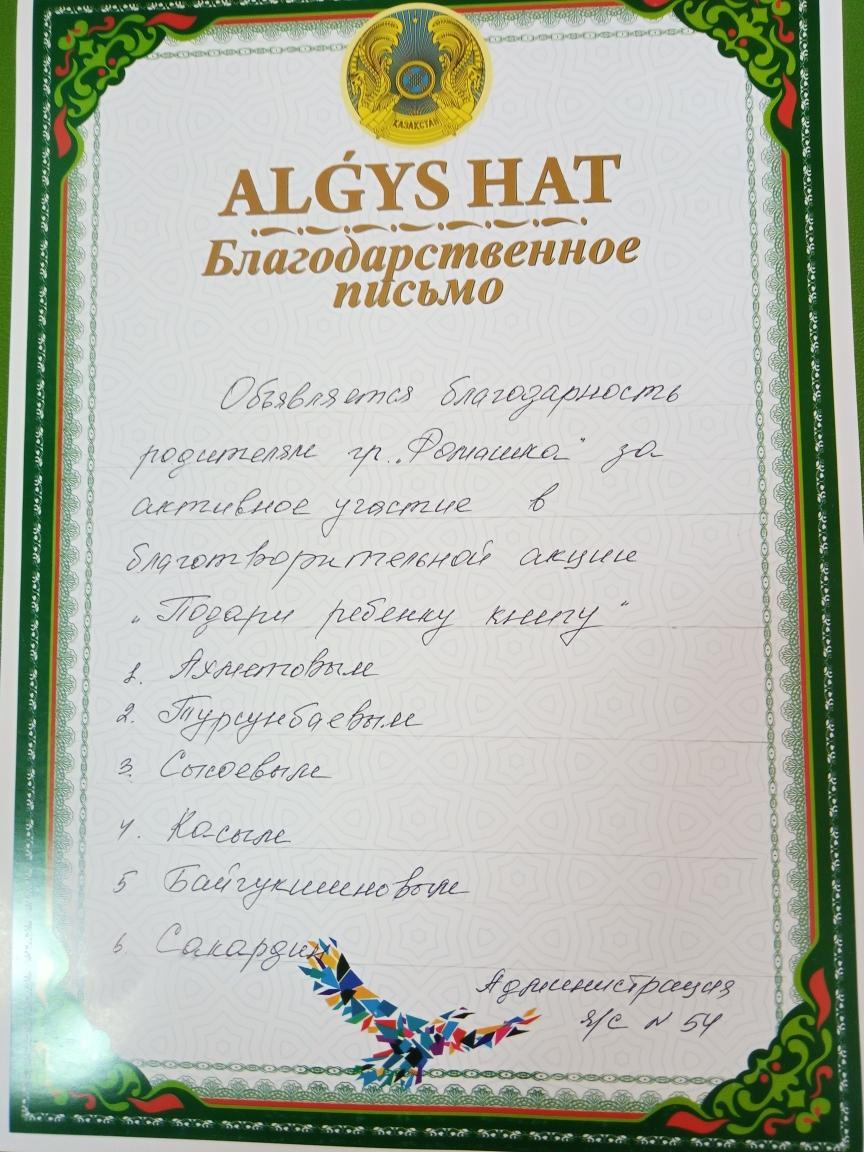 ҚАЗАҚСТАН
ALǴYS HAT
Благодарственное
письмо
Объявляется благодарность
родителям гр. „Ромашка" за
активное участие в
благотворительной акции
„Подари ребенку книгу"
1. Ахметовым
2. Турсунбаевым
3. Сысоевым
4. Касым
5 Байгукишновым
6. Сакардин
Администрация
я/с N 54